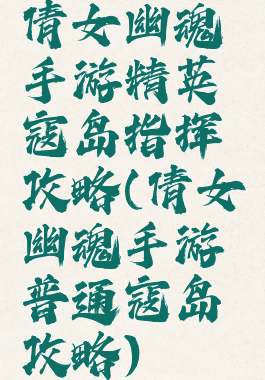 倩女幽魂
手游精英
寇岛指挥
攻略(倩女
幽魂手游
普通寇岛
攻略)